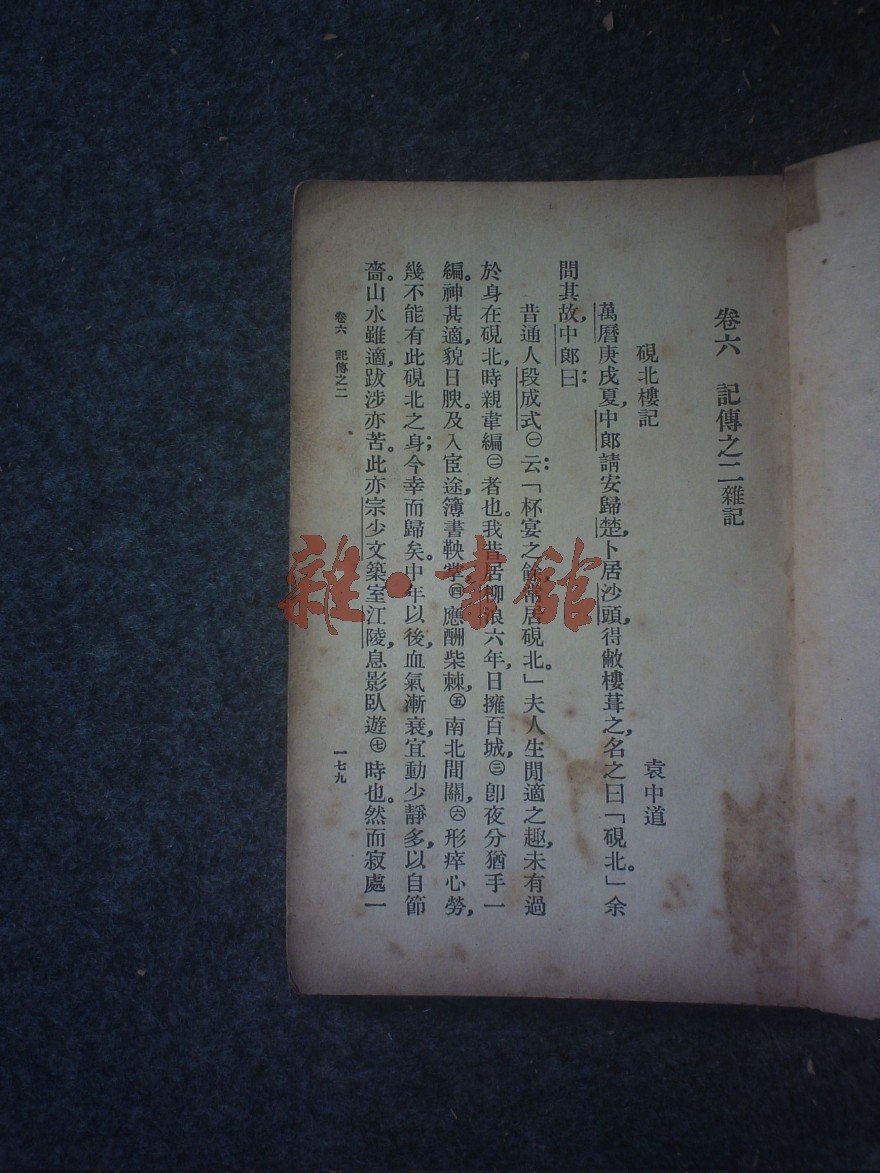 卷六　記傳之二 雜記
硯北樓記
袁中道
萬曆庚戌夏，中郎請安歸楚，卜居沙頭，得敝樓葺之，名之曰「硯北。」余
問其故，中郎曰：
昔通人段成式㊀云：「杯宴之餘常居硯北。」夫人生閒適之趣，未有過
於身在硯北，時親韋編㊁者也。我昔居柳浪六年，日擁百城，㊂卽夜分猶手一
編。神甚適，貌日腴。及入宦途，簿書鞅掌㊃應酬柴棘，㊄南北間關，㊅形瘁心勞，
幾不能有此硯北之身；今幸而歸矣。中年以後，血氣漸衰，宜動少靜多，以自節
嗇。山水雖適，跋涉亦苦。此亦宗少文築室江陵，息影臥遊㊆時也。然而寂處一
卷六　記傳之二
一七九
雜·書館